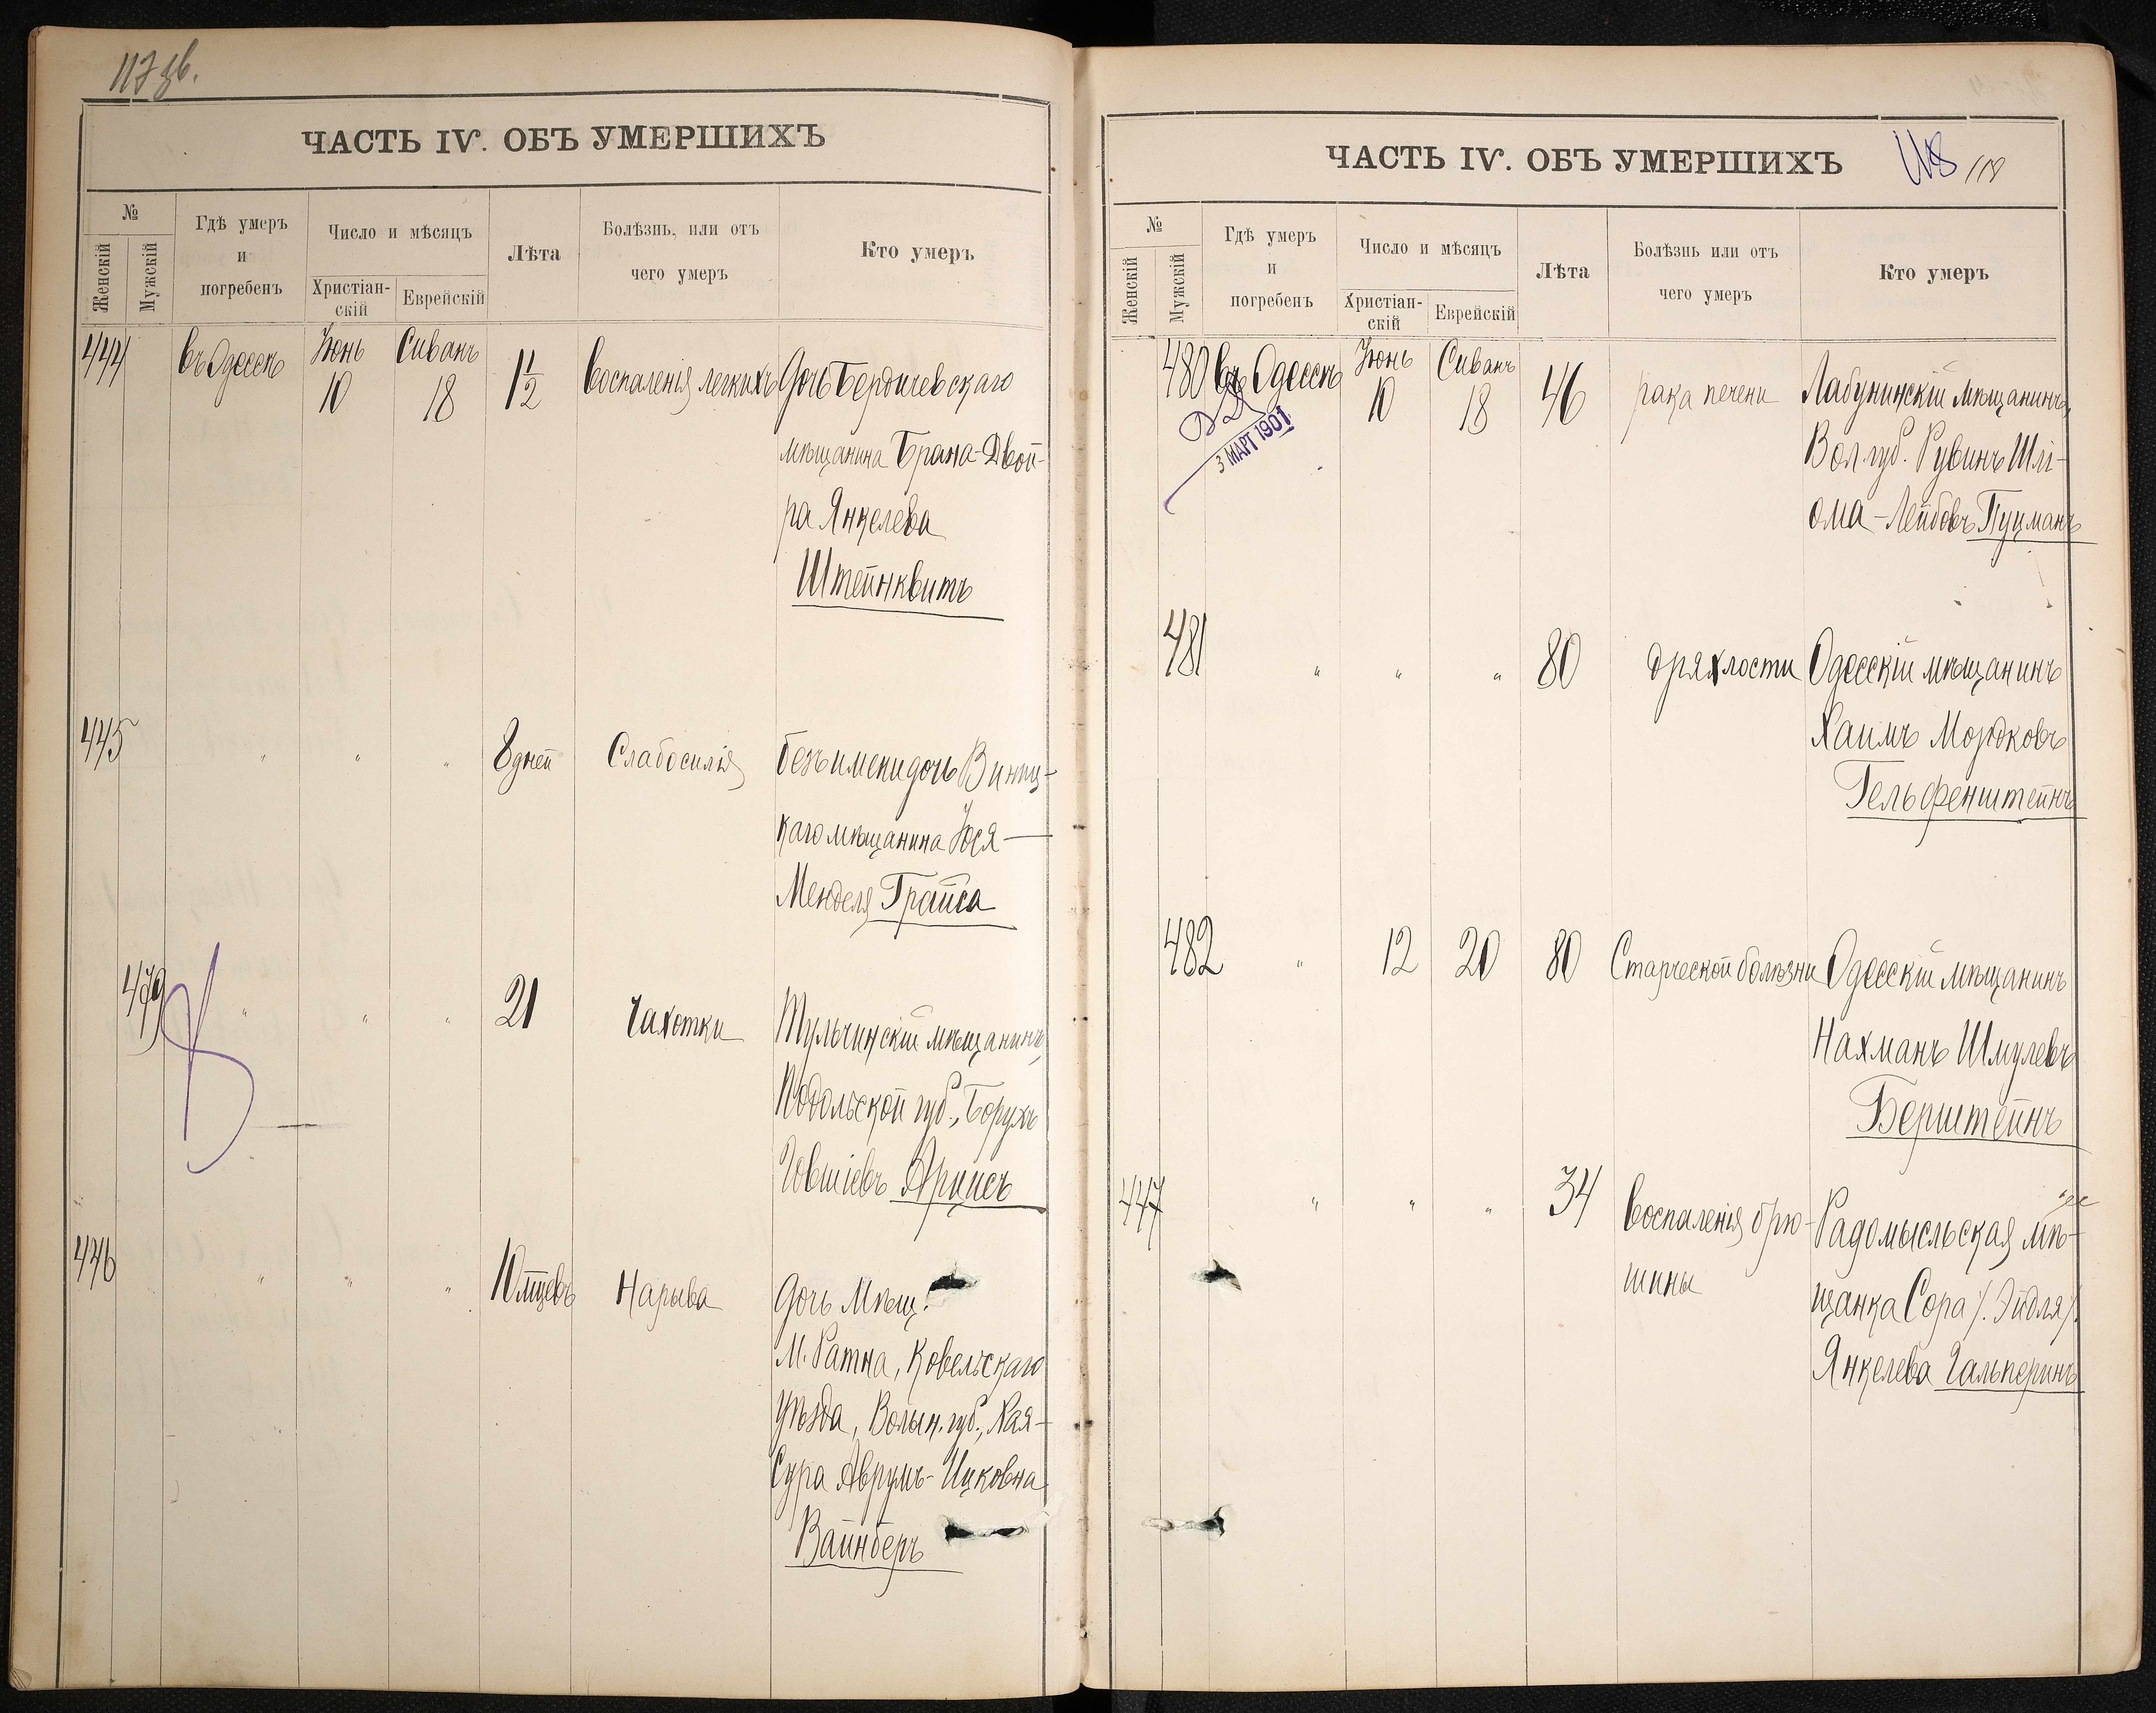 117 зв.
ЧАСТЬ IV. ОБЪ УМЕРШИХЪ
№
Женскій
Мужскій
Гдѣ умеръ
и
погребенъ
Число и мѣсяцъ
Христіан-
скій
Еврейскій
Лѣта
Болѣзнь, или отъ
чего умеръ
Кто умеръ
444 въ Одессѣ Июнь 10 Сиванъ 18 1½ воспаленія легкихъ Дочь Бердичевскаго
мѣщанина Брана-Двой-
ра Янкелева
Штейнквитъ
445 " " " 8 дней Слабосилія безъ имени дочь Винниц-
каго мѣщанина Юся-
Менделя Грайса
479 " " " 21 Чахотки Тульчинскій мѣщанинъ,
Подольской губ., Борухъ
Іовшіевъ Арписъ
446 " " " 10 мѣцевъ Нарыва Дочь Мѣщ.
М. Ратна, Ковельскаго
Уѣзда, Волын. губ., Хая-
Сура Аврумъ-Ицковна
Вайнберъ
ЧАСТЬ IV. ОБЪ УМЕРШИХЪ
118 118
№
Женскій
Мужскій
Гдѣ умеръ
и
погребенъ
Число и мѣсяцъ
Христіан-
скій
Еврейскій
Лѣта
Болѣзнь или отъ
чего умеръ
Кто умеръ
480 въ Одессѣ Июнь 10 Сиванъ 18 46 рака печени Лабунинскій мѣщанинъ,
Вол. губ. Рувинъ Шлі-
ома-Лейбовъ Пуцманъ
3 МАРТ 1901
481 " " " 80 дряхлости Одесскій мѣщанинъ
Хаимъ Мордковъ
Гельфенштейнъ
482 " 12 20 80 Старческой болѣзни Одесскій мѣщанинъ
Нахманъ Шмулевъ
Берштейнъ
447 " " " 34 воспаленія брю- Радомысльская мѣ-
шины щанка Сора /. Эйдля /.
Янкелева Гальперинъ